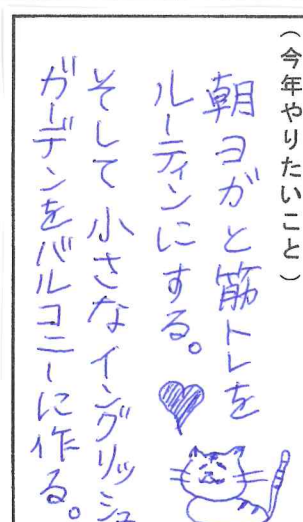 （今年やりたいこと）
朝ヨガと筋トレを
ルーティンにする。
そして小さなイングリッシュ
ガーデンをバルコニーに作る。